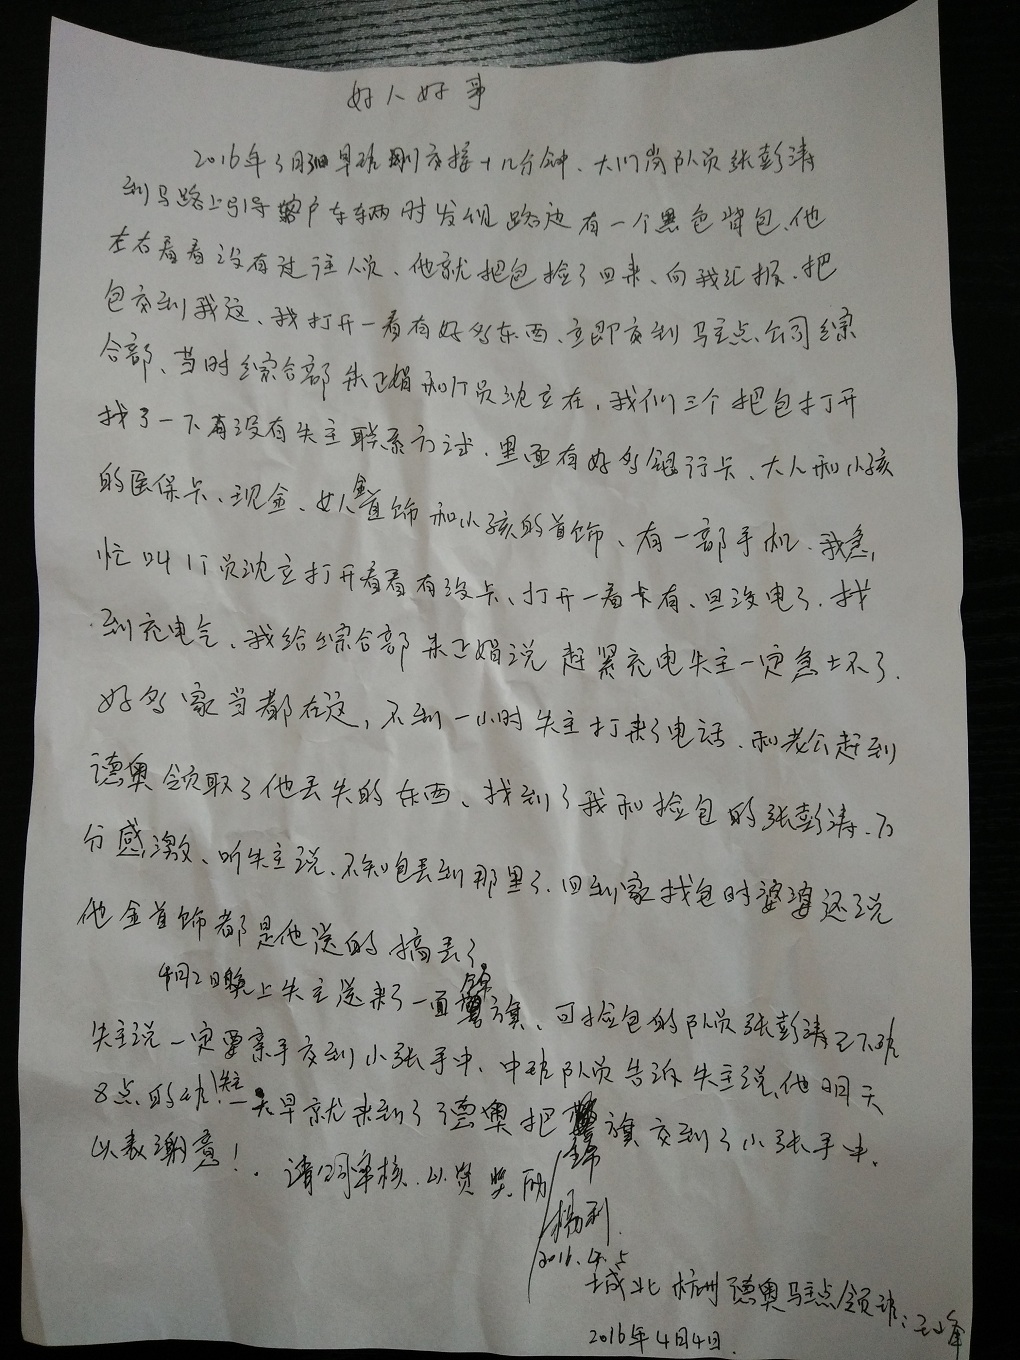 好人好事
2016年3月30日早班刚交接十几分钟、大门岗队员张彭涛
到马路上引导客户车车辆时发现路边有一个黑色背包、他
左右看看没有过往人员、他就把包捡了回来、向我汇报、把
包交到我这、我打开一看有好多东西、立即交到马主点、公司综
合部、当时综合部朱卫娟和门员沈立在，我们三个把包打开
找了一下有没有失主联系方式、里面有好多银行卡、大人和小孩
的医保卡、现金、女人金首饰和小孩的首饰、有一部手机、我急
忙叫门员沈立打开看看有没卡、打开一看卡有、旦没电了、找
到充电气、我给综合部朱卫娟说赶紧充电失主一定急坏了、
好多家当都在这，不到一小时失主打来了电话、和老公赶到
德奥领取了他丢失的东西、找到了我和捡包的张彭涛、万
分感激、听失主说、不知包丢到那里了、回到家找包时婆婆还说
他金首饰都是他送的搞丢了。
4月2日晚上失主送来了一面锦旗、可捡包的队员张彭涛已下班
失主说一定要亲手交到小张手中、中班队员告诉失主说、他明天
8点的班！失主一大早就来到了德奥把锦旗交到了小张手中、
以表谢意！. 请公司审核、以资奖励
杨利
2016.4.5
城北杭州德奥马主点领班：王小军
2016年4月4日.